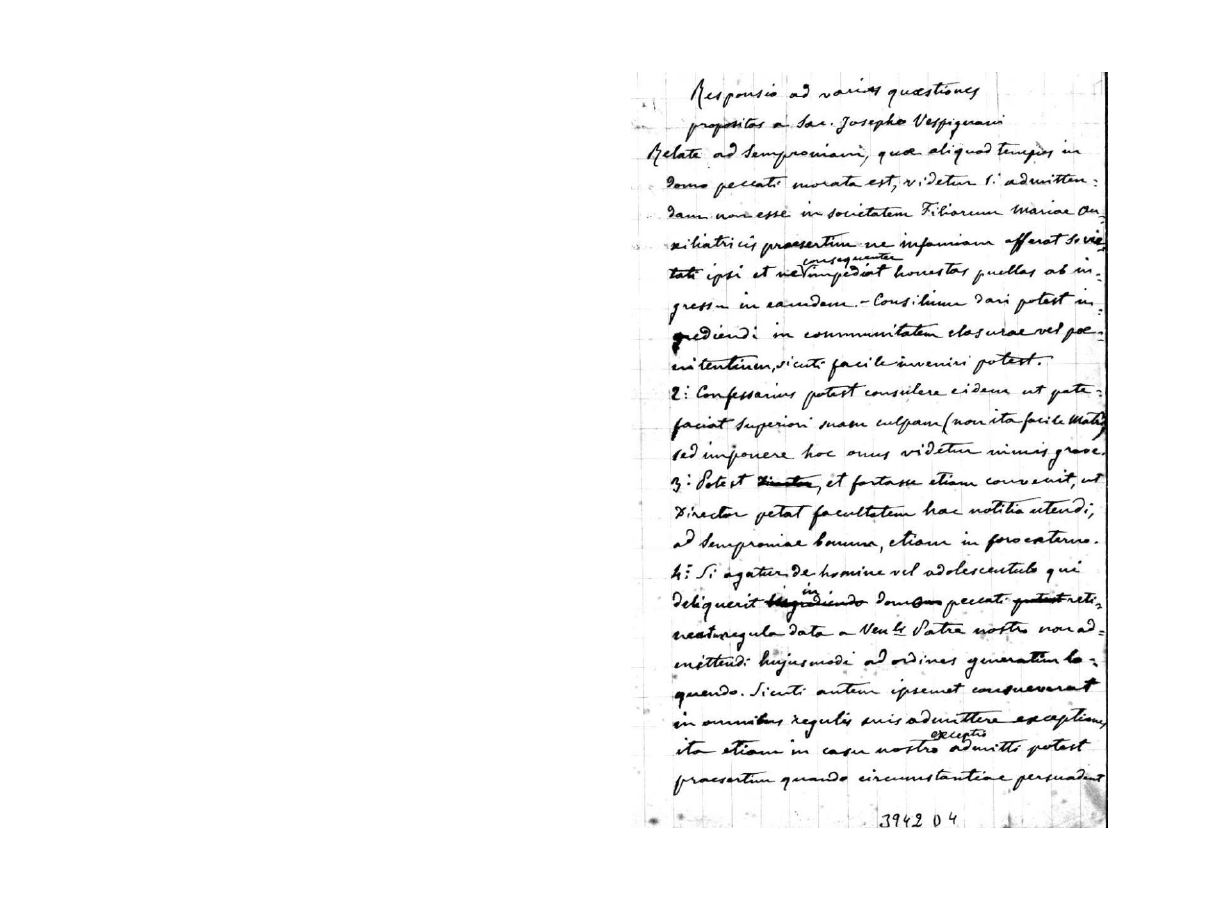 Responsio ad varias quæstiones
propositas a Sac. Josepho Vespignani
Relate ad Semproniam, quæ aliquod tempus in
domo peccati morata est, videtur 1: admitten-
dam non esse in societatem Filiarum Mariae Au-
xiliatricis praesertim ne infamiam afferat Socie-
tati ipsi et ne consequenter impediat honestas puellas ab in-
gressu in eamdem. - Consilium dari potest in-
grediendi in communitatem clasurae vel poe-
nitentium, sicuti facile inveniri potest.
2: Confessarius potest consulere eidem ut pate-
faciat Superiori suam culpam (non ita facile Matri)
sed imponere hoc onus videtur nimis grave.
3: Potest Director, et fortasse etiam convenit, ut
Director petat facultatem hac notitia utendi,
ad Semproniae bonum, etiam in foro externo.
4: Si agatur de homine vel adolescentulo qui
deliquerit ingrediendo in domo peccati potest reti-
neatur regula data a Ven.li Patre nostro non ad-
mittendi hujusmodi ad ordines generatim lo-
quendo. Sicuti autem ipsemet consueverat
in omnibus regulis suis admittere exceptiones
ita etiam in casu nostro exceptio admitti potest
praesertim quando circumstantiae persuadent
3942 D 4